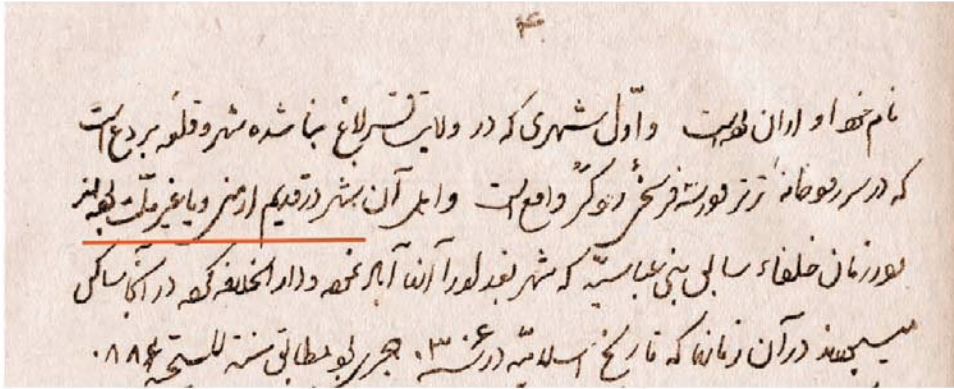 ۴
نام خود او اران بوده است و اوّل شهری که در ولایت قراباغ بنا شده شهر و قلعه بردع است
که در سر رودخانه ترتر در سه فرسخی رود کُر واقع است و اهل آن شهر در قدیم ارمنی و یا غیر ملّت بوده‌اند
در زمان خلفاء بنی عباسیّه که شهر بغداد را آنها آباد نموده و دار الخلافه کرده در آنجا ساکن
میبودند در آن زمانها که تاریخ اسلامیّه در سنه هجری بود مطابق سنه